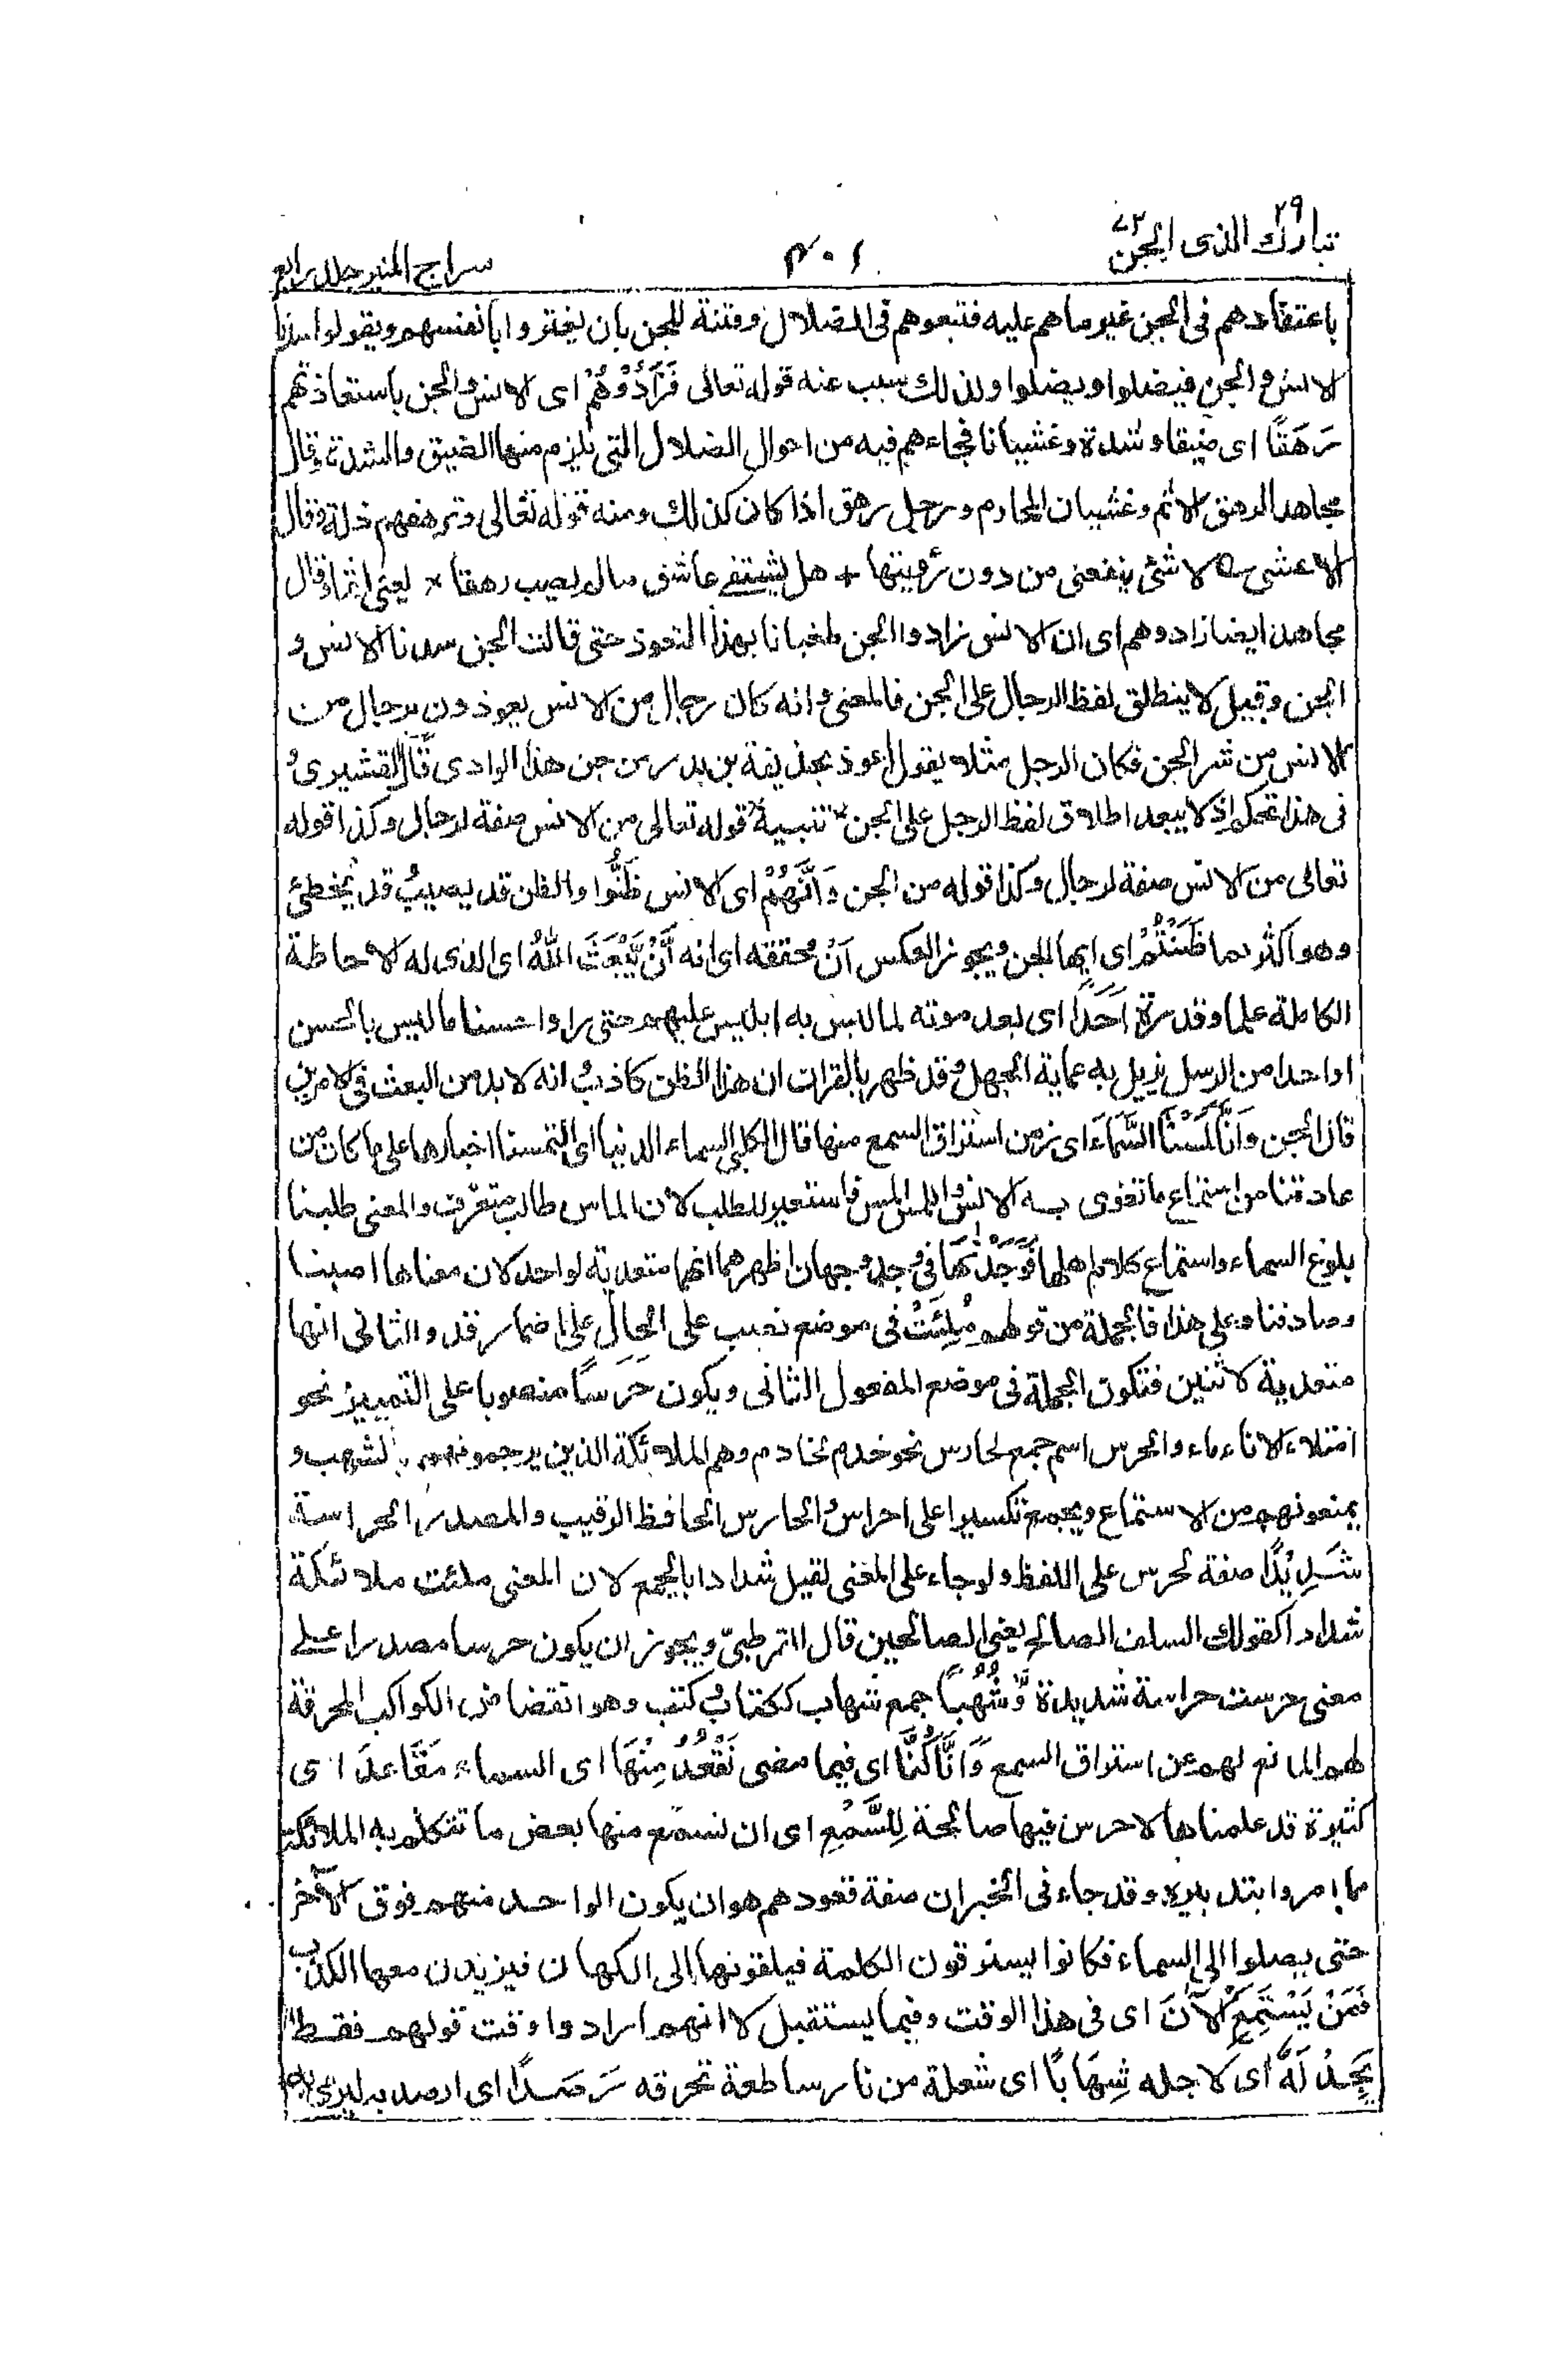 تبارك الذى ٢٩ الجن ٧٢
٤٠١
سراج المنير جلد رابع
باعتقادهم فى الجن غير ما هم عليه فتبعوهم فى الضلال وفتنة للجن بان يغتروا بانفسهم ويقولوا سدنا
الانس والجن فيضلوا ويضلوا ولذلك سبب عنه قوله تعالى فَزَادُوْهُمْ اى الانس والجن باستعاذتهم
رَهَقًا اى ضيقا وشدة وغشيانا فجاءهم فيه من احوال الضلال التى يلزم منها الضيق والشدة وقال
مجاهد الرهق الاثم وغشيان المحارم ورجل رهق اذا كان كذلك ومنه قوله تعالى وترهقهم ذلة وقال
الاعشى لا شئ ينفعنى من دون رؤيتها + هل يشتفے عاشق مالم يصب رهقا * يعنى اثما وقال
مجاهد ايضا زادوهم اى ان الانس زادوا الجن طغيانا بهذا التعوذ حتى قالت الجن سدنا الانس و
الجن وقيل لا ينطلق لفظ الرجال على الجن فالمعنى وانه كان رجال من الانس يعوذون برجال من
الانس من شر الجن فكان الرجل مثلا يقول اعوذ بحذيفة بن بدر من جن هذا الوادى قال القشيرى و
فى هذا تحكم اذ لا يبعد اطلاق لفظ الرجل على الجن تنبيه قوله تعالى من الانس صفة لرجال وكذا قوله
تعالى من الانس صفة لرجال وكذا قوله من الجن وَاَنَّهُمْ اى الانس ظَنُّوا والظن قد يصيب وقد يخطئ
وهو اكثر كما ظَنَنْتُمْ اى ايها الجن ويجوز العكس اَنْ مخففه اى انه لَّنْ يَّبْعَثَ اللّٰهُ اى الذى له الاحاطة
الكاملة علما وقدرة اَحَدًا اى بعد موته لما لبس به ابليس عليهم حتى راوا حسنا ما ليس بالحسن
او احدا من الرسل يزيل به عماية الجهل وقد ظهر بالقران ان هذا الظن كاذب وانه لابد من البعث فى الامرين
قال الجن وَاَنَّا لَمَسْنَا السَّمَآءَ اى زمن استراق السمع منها قال الكلبى السماء الدنيا اى التمسنا اخبارها على ما كان من
عادتنا من استماع ما تغوى به الانس واللمس المس فاستعير للطلب لان الماس طالب متعرف والمعنى طلبنا
بلوغ السماء واستماع كلام اهلها فَوَجَدْنٰهَا فى وجد وجهان اظهرهما انها متعدية لواحد لان معناها اصبنا
وصادفنا وعلى هذا فالجملة من قولهم مُلِئَتْ فى موضع نصب على الحال على اضمار قد والثانى انها
متعدية لاثنين فتكون الجملة فى موضع المفعول الثانى ويكون حَرَسًا منصوبا على التمييز نحو
امتلاء الاناء ماء والحرس اسم جمع لحارس نحو خدم لخادم وهم الملائكة الذين يرجمونهم بالشهب و
يمنعونهم من الاستماع ويجمع تكسيرا على احراس والحارس الحافظ الرقيب والمصدر الحراسة
شَدِيْدًا صفة لحرس على اللفظ ولو جاء على المعنى لقيل شدادا بالجمع لان المعنى ملئت ملائكة
شدادا كقولك السلف الصالح يعنى الصالحين قال القرطبىّ ويجوز ان يكون حرسا مصدرا علے
معنى حرست حراسة شديدة وَّشُهُبًا جمع شهاب ككتاب وكتب وهو انقضاض الكواكب المحرقة
لهم المانع لهم عن استراق السمع وَّاَنَّا كُنَّا اى فيما مضى نَقْعُدُ مِنْهَا اى السماء مَقَاعِدَ اى
كثيرة قد علمناها لا حرس فيها صالحة لِلسَّمْعِ اى ان نسمع منها بعض ما تتكلم به الملائكة
مما امروا بتدبيره وقد جاء فى الخبر ان صفة قعودهم هو ان يكون الواحد منهم فوق الاٰخر
حتى يصلوا الى السماء فكانوا يسترقون الكلمة فيلقونها الى الكهان فيزيدون معها الكذب
فَمَنْ يَّسْتَمِعِ الْاٰنَ اى فى هذا الوقت وفيما يستقبل لا انهم ارادوا وقت قولهم فقط
يَجِدْ لَهٗ اى لاجله شِهَابًا اى شعلة من نار ساطعة تحرقه رَصَدًا اى ارصد به ليرمى